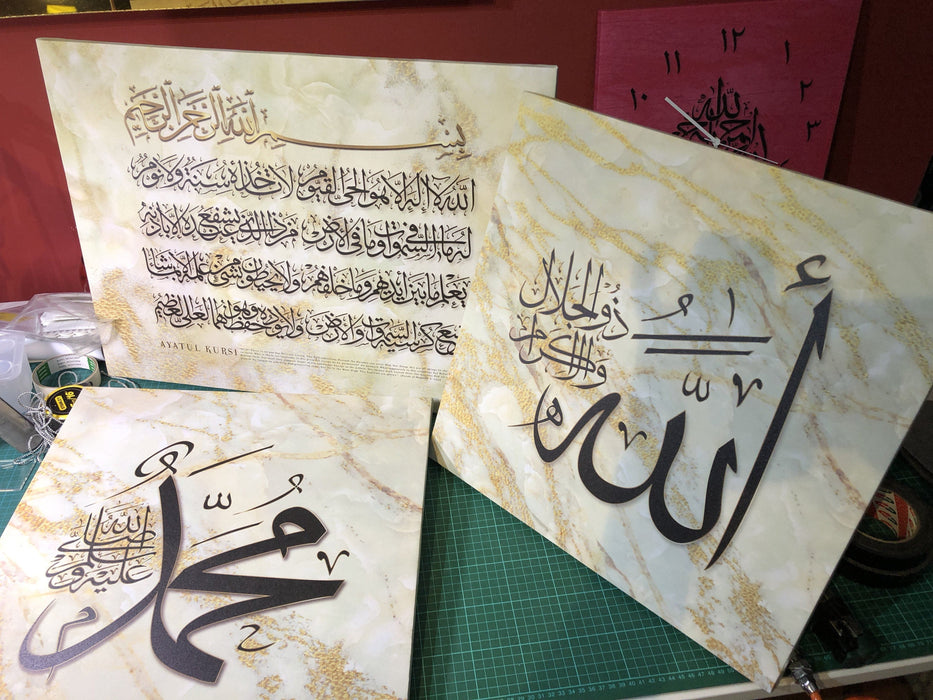 بِسْمِ اللهِ الرَّحْمٰنِ الرَّحِيمِ
اللهُ لَا إِلٰهَ إِلَّا هُوَ الْحَيُّ الْقَيُّومُ لَا تَأْخُذُهُ سِنَةٌ وَلَا نَوْمٌ
لَهُ مَا فِي السَّمٰوَاتِ وَمَا فِي الْأَرْضِ مَنْ ذَا الَّذِي يَشْفَعُ عِنْدَهُ إِلَّا بِإِذْنِهِ
يَعْلَمُ مَا بَيْنَ أَيْدِيهِمْ وَمَا خَلْفَهُمْ وَلَا يُحِيطُونَ بِشَيْءٍ مِنْ عِلْمِهِ إِلَّا بِمَا شَاءَ
وَسِعَ كُرْسِيُّهُ السَّمٰوَاتِ وَالْأَرْضَ وَلَا يَئُودُهُ حِفْظُهُمَا وَهُوَ الْعَلِيُّ الْعَظِيمُ
AYATUL KURSI
١٢
١١
١
١٠
٢
٣
الله
ذُو الْجَلَالِ
وَالْإِكْرَامِ
مُحَمَّد
صَلَّى اللهُ
عَلَيْهِ وَسَلَّمَ